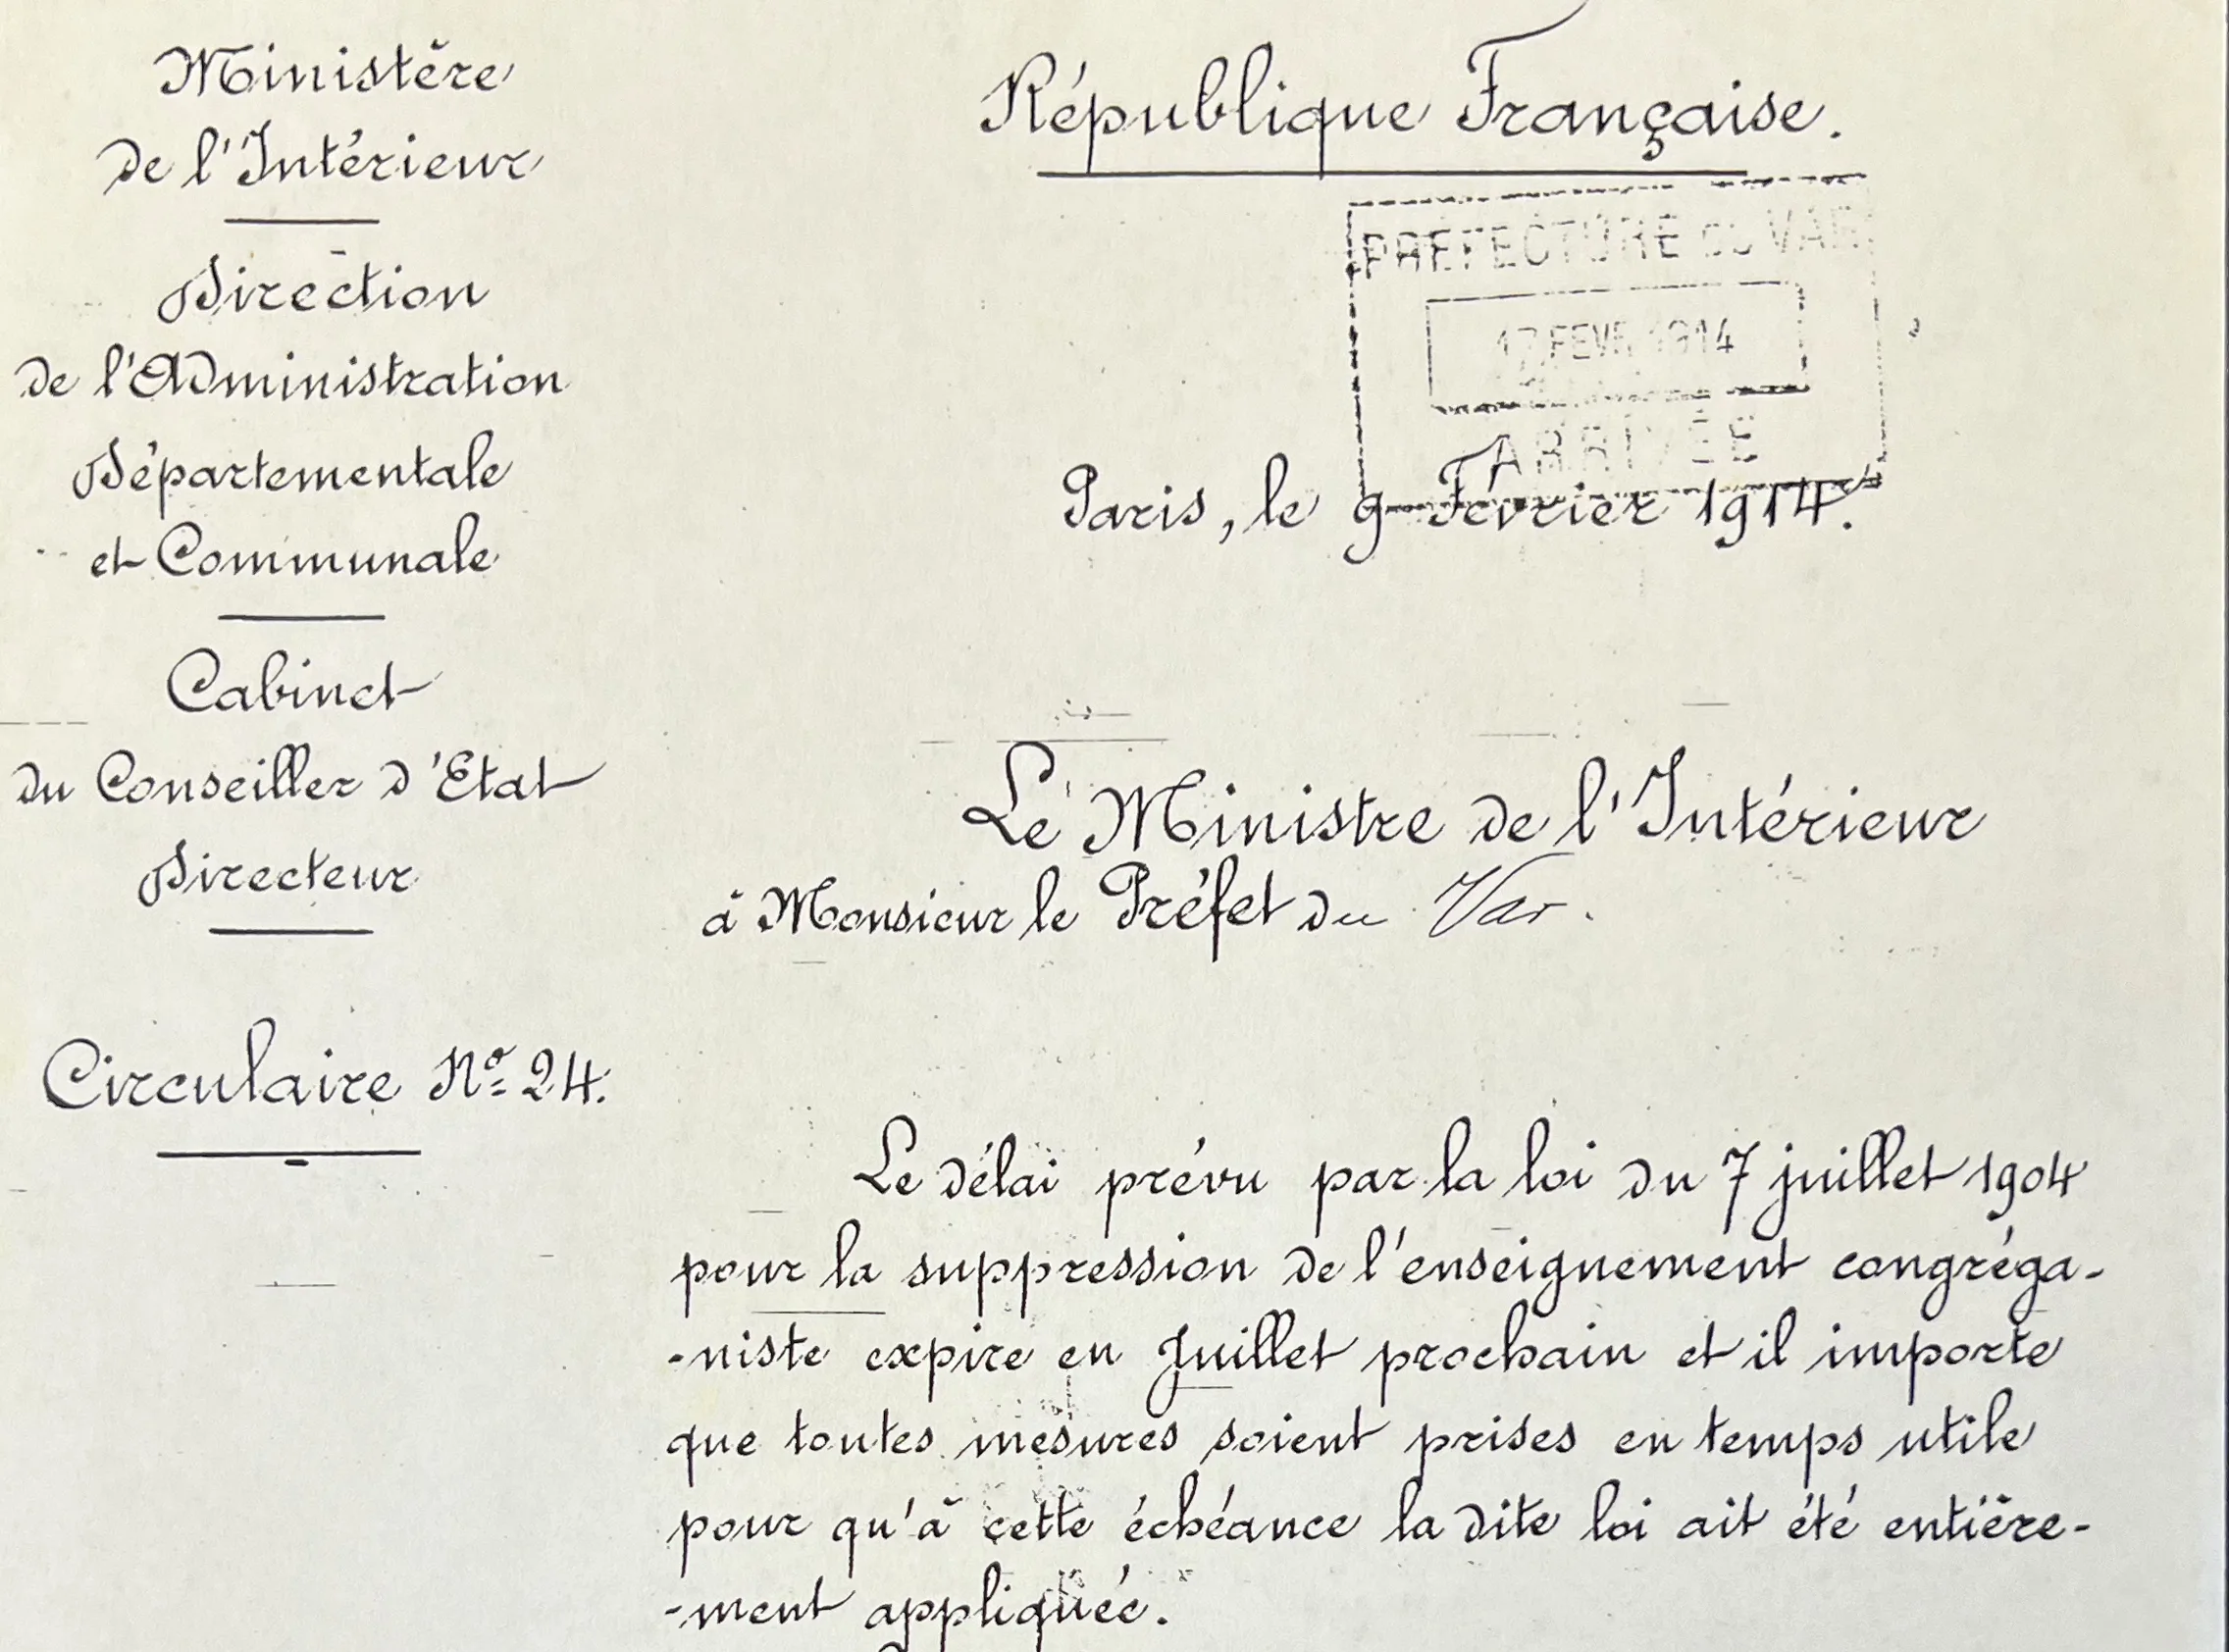 Ministère
de l'Intérieur
Direction
de l'Administration
Départementale
et Communale
Cabinet
du Conseiller d'Etat
Directeur
Circulaire Nº 24.
République Française.
PREFECTURE DU VAR
FEVR 1914
ARRIVÉE
Paris, le 9 Février 1914.
Le Ministre de l'Intérieur
à Monsieur le Préfet du Var.
Le délai prévu par la loi du 7 juillet 1904
pour la suppression de l'enseignement congréga-
-niste expire en Juillet prochain et il importe
que toutes mesures soient prises en temps utile
pour qu'à cette échéance la dite loi ait été entière-
-ment appliquée.